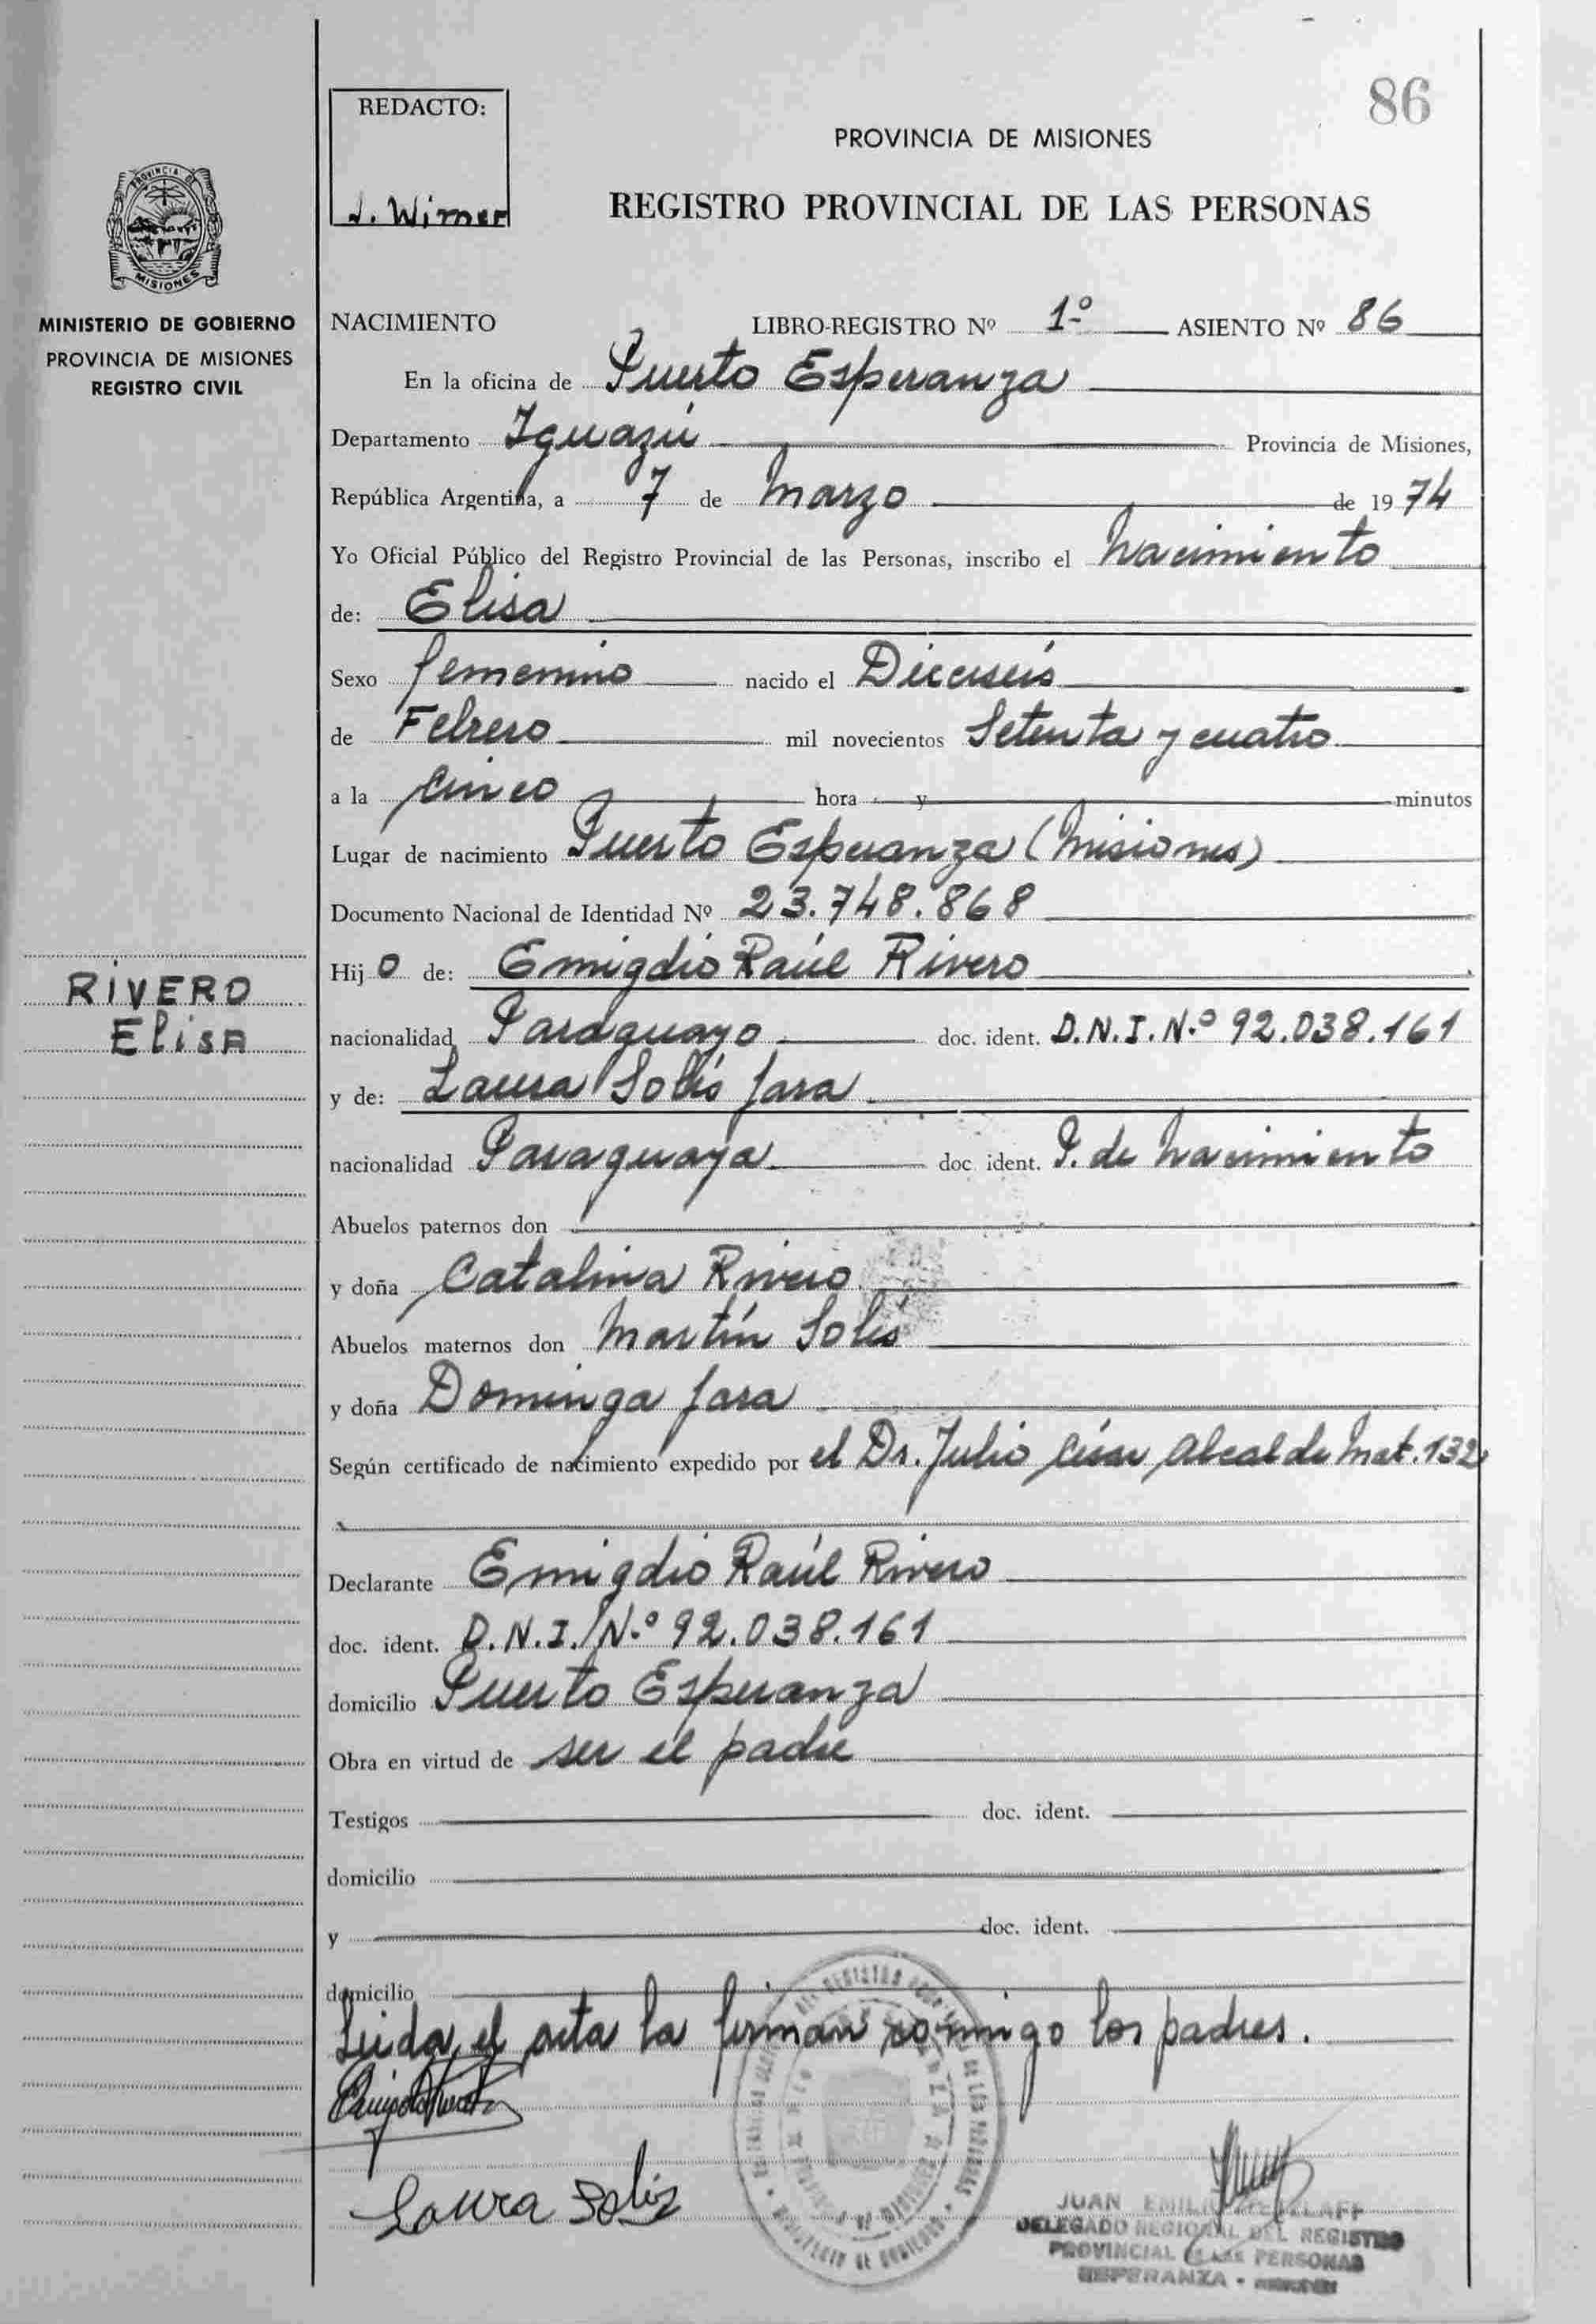 86
REDACTO:
J. Wimer
PROVINCIA DE MISIONES
REGISTRO PROVINCIAL DE LAS PERSONAS
PROVINCIA DE
MISIONES
MINISTERIO DE GOBIERNO
PROVINCIA DE MISIONES
REGISTRO CIVIL
NACIMIENTO LIBRO-REGISTRO Nº 1º ASIENTO Nº 86
En la oficina de Puerto Esperanza
Departamento Iguazú Provincia de Misiones,
República Argentina, a 7 de Marzo de 1974
Yo Oficial Público del Registro Provincial de las Personas, inscribo el Nacimiento
de: Elisa
Sexo femenino nacido el Dieciseis
de Febrero mil novecientos Setenta y cuatro
a la cinco hora y minutos
Lugar de nacimiento Puerto Esperanza (Misiones)
Documento Nacional de Identidad Nº 23.748.868
RIVERO
Elisa
Hijo de: Emigdio Raúl Rivero
nacionalidad Paraguayo doc. ident. D.N.I.N.º 92.038.161
y de: Laura Solís Jara
nacionalidad Paraguaya doc. ident. P. de Nacimiento
Abuelos paternos don
y doña Catalina Rivero
Abuelos maternos don Martín Solís
y doña Dominga Jara
Según certificado de nacimiento expedido por el Dr. Julio César Alcalde Mat. 132
Declarante Emigdio Raúl Rivero
doc. ident. D.N.I. N.º 92.038.161
domicilio Puerto Esperanza
Obra en virtud de ser el padre
Testigos doc. ident.
domicilio
y doc. ident.
domicilio
Leida el acta la firman conmigo los padres.
Laura Solis
JUAN
DELEGADO REGIONAL DEL REGISTRO
PROVINCIAL DE LAS PERSONAS
ESPERANZA -